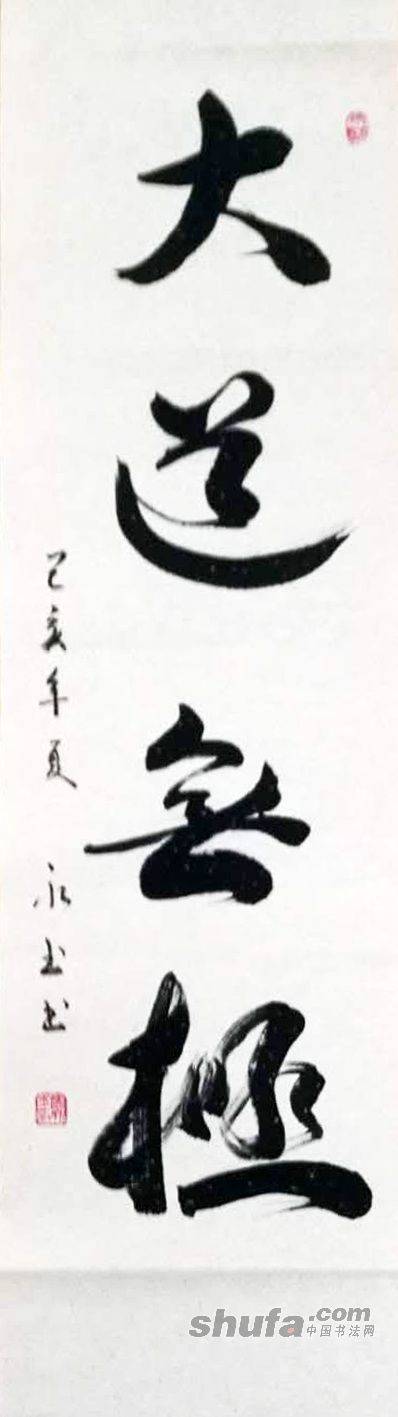 大道無極
己亥年夏 永玉书
shufa.com
中国书法网